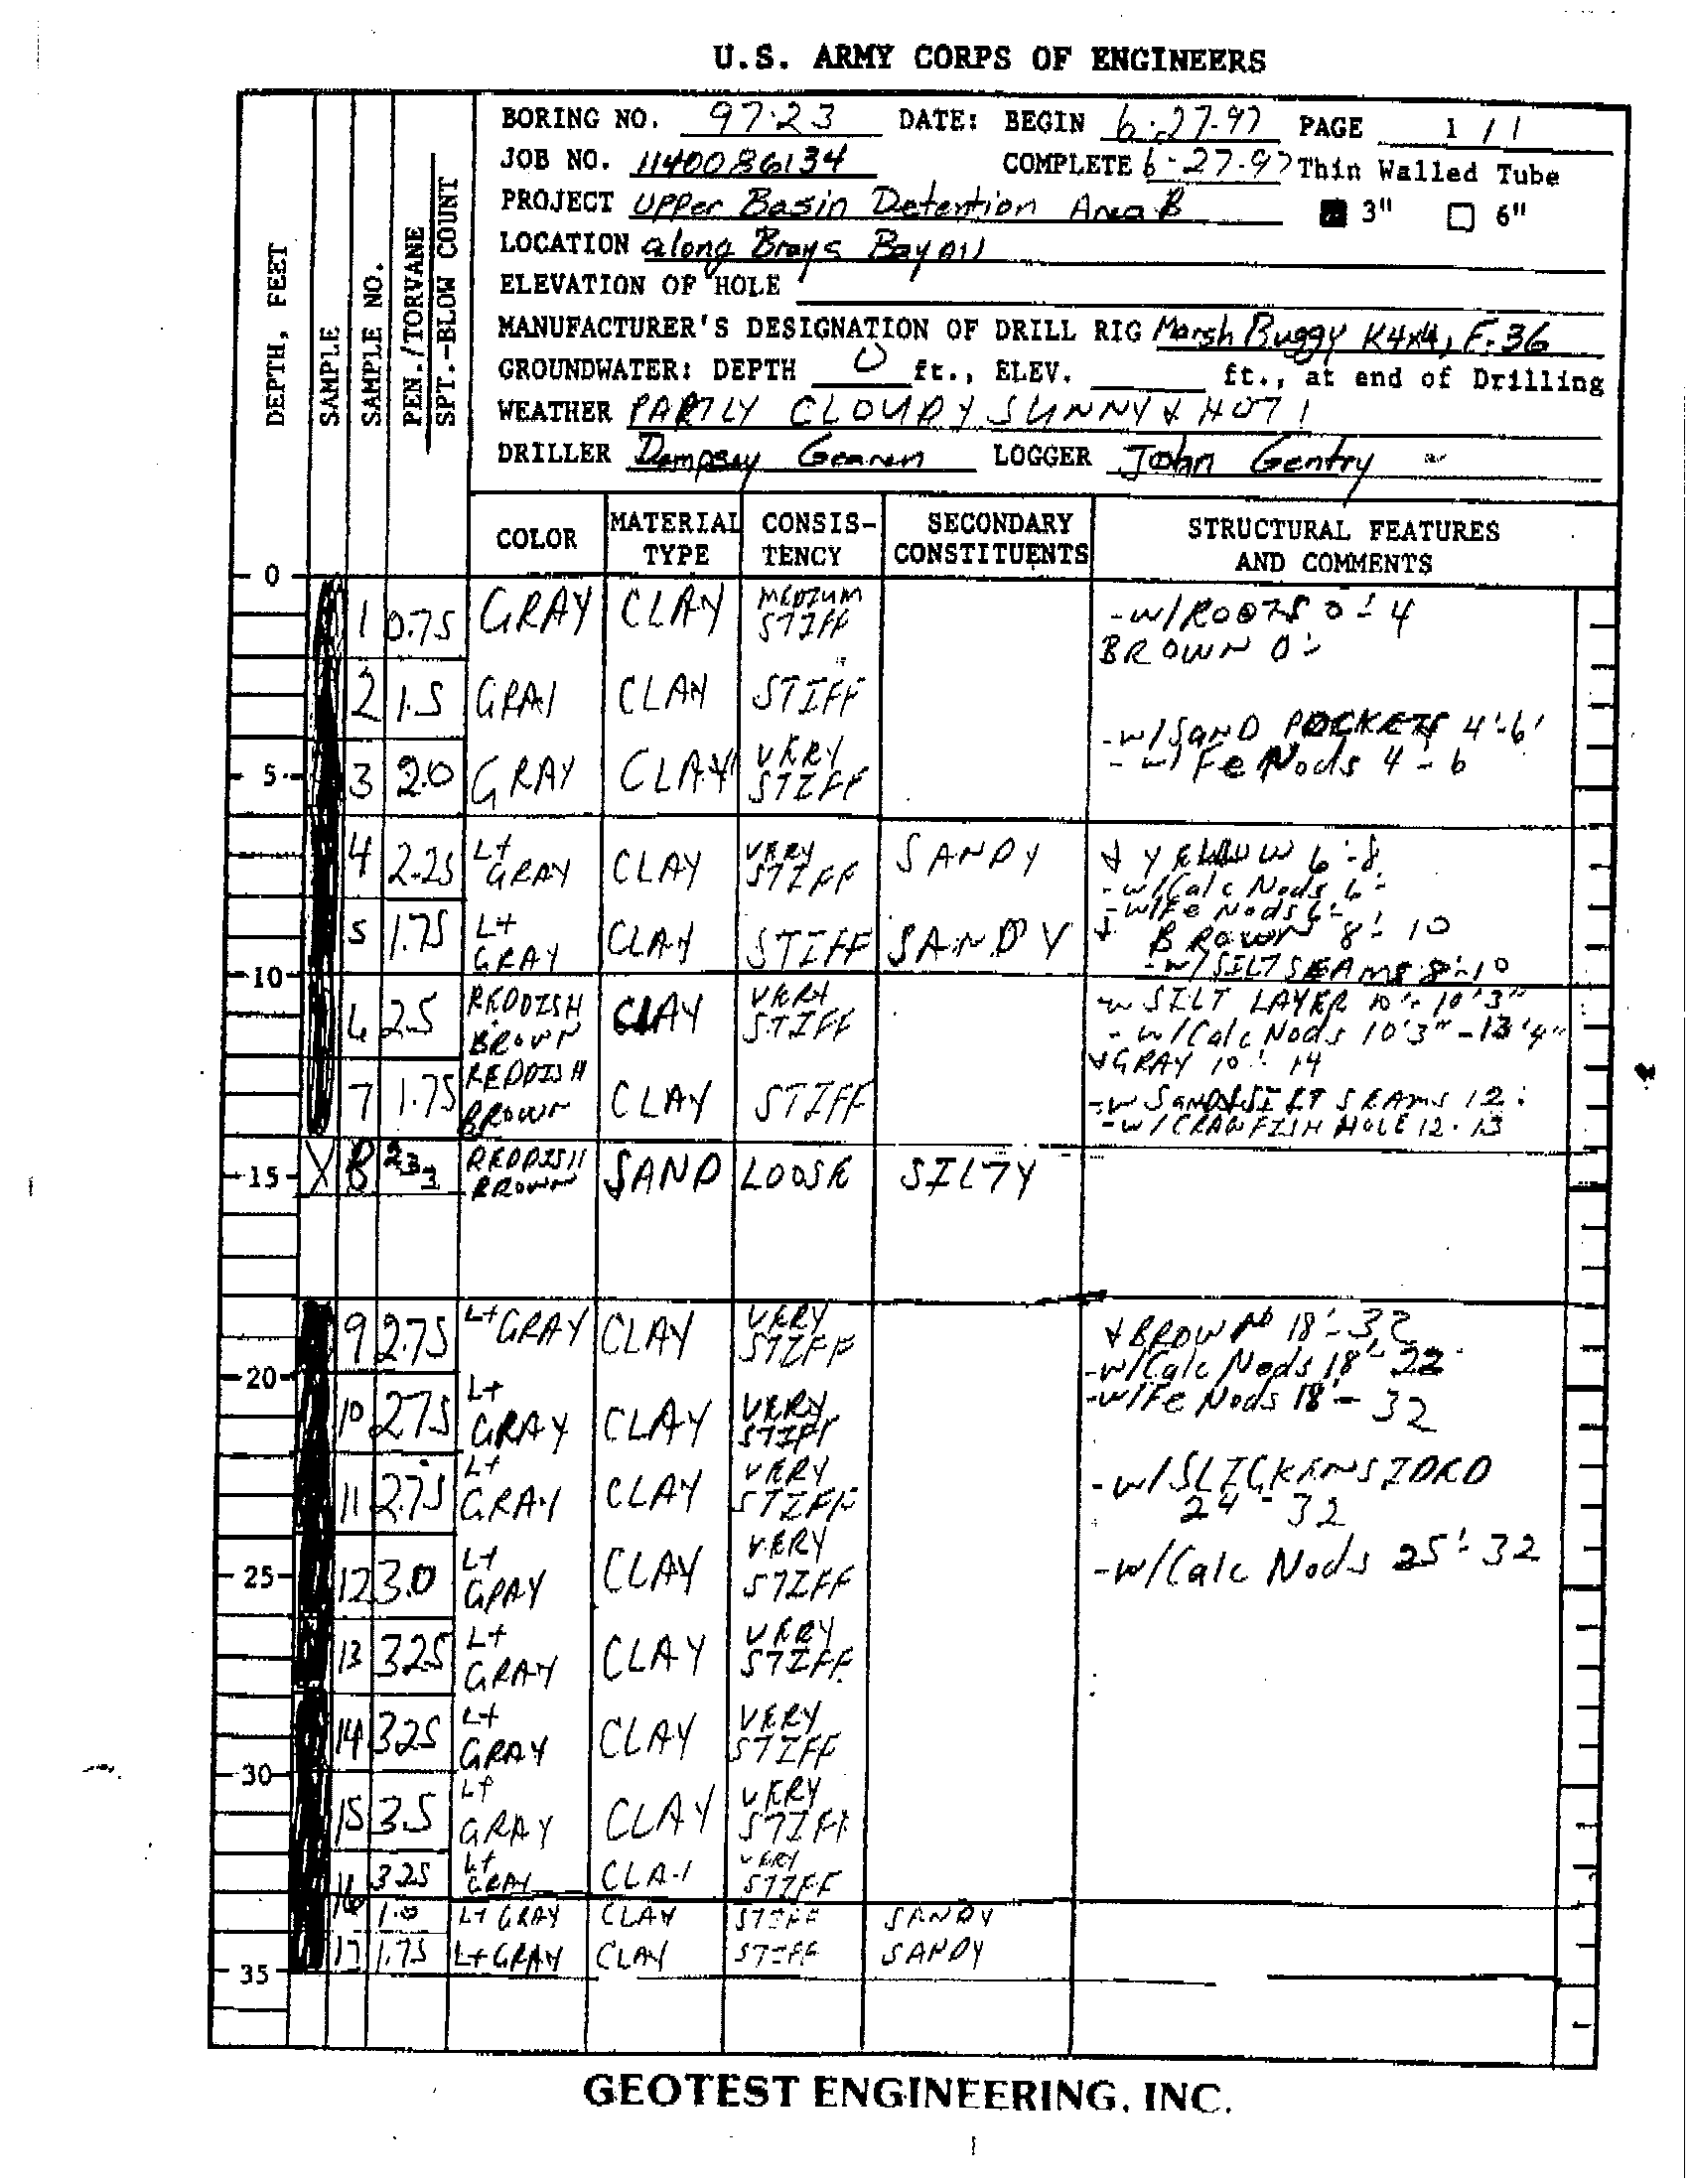 U.S. ARMY CORPS OF ENGINEERS
BORING NO. 97-23 DATE: BEGIN 6-27-97 PAGE 1 / 1
JOB NO. 1140086134 COMPLETE 6-27-97 Thin Walled Tube
PROJECT Upper Basin Detention Area B 3" 6"
LOCATION along Brays Bayou
ELEVATION OF HOLE
MANUFACTURER'S DESIGNATION OF DRILL RIG Marsh Buggy K4x4, F-36
GROUNDWATER: DEPTH 0 ft., ELEV. ft., at end of Drilling
WEATHER PARTLY CLOUDY SUNNY & HOT!
DRILLER Dempsey LOGGER John Gentry
DEPTH, FEET
SAMPLE
SAMPLE NO.
PEN./TORVANE
SPT.-BLOW COUNT
COLOR MATERIAL TYPE CONSIS-TENCY SECONDARY CONSTITUENTS STRUCTURAL FEATURES AND COMMENTS
0
1 0.75 GRAY CLAY MEDIUM STIFF -W/ROOTS 0'-4
BROWN 0'-
2 1.5 GRAY CLAY STIFF
-W/SAND POCKETS 4'-6'
5 3 2.0 GRAY CLAY VERY STIFF -W/Fe Nods 4-6
4 2.25 Lt GRAY CLAY VERY STIFF SANDY & YELLOW 6'-8
-W/Calc Nods 6'-
-W/Fe Nods 6'-
5 1.75 Lt GRAY CLAY STIFF SANDY & BROWN 8'-10
10 -W/SILT SEAMS 8'-10
6 2.5 REDDISH BROWN CLAY VERY STIFF -W SILT LAYER 10'-10'3"
-W/Calc Nods 10'3"-13'4"
& GRAY 10'-14
7 1.75 REDDISH BROWN CLAY STIFF -W SAND&SILT SEAMS 12'
-W/CRAWFISH HOLE 12-13
15 X 8 2 3 3 REDDISH BROWN SAND LOOSE SILTY
9 2.75 Lt GRAY CLAY VERY STIFF & BROWN 18'-32
-W/Calc Nods 18'-22
20 -W/Fe Nods 18'-32
10 2.75 Lt GRAY CLAY VERY STIFF
11 2.75 Lt GRAY CLAY VERY STIFF -W/SLICKENSIDED
24-32
25 12 3.0 Lt GRAY CLAY VERY STIFF -W/Calc Nods 25'-32
13 3.25 Lt GRAY CLAY VERY STIFF
14 3.25 Lt GRAY CLAY VERY STIFF
30
15 3.5 Lt GRAY CLAY VERY STIFF
16 3.25 Lt GRAY CLAY VERY STIFF
1.0 LT GRAY CLAY STIFF SANDY
17 1.75 Lt GRAY CLAY STIFF SANDY
35
GEOTEST ENGINEERING, INC.